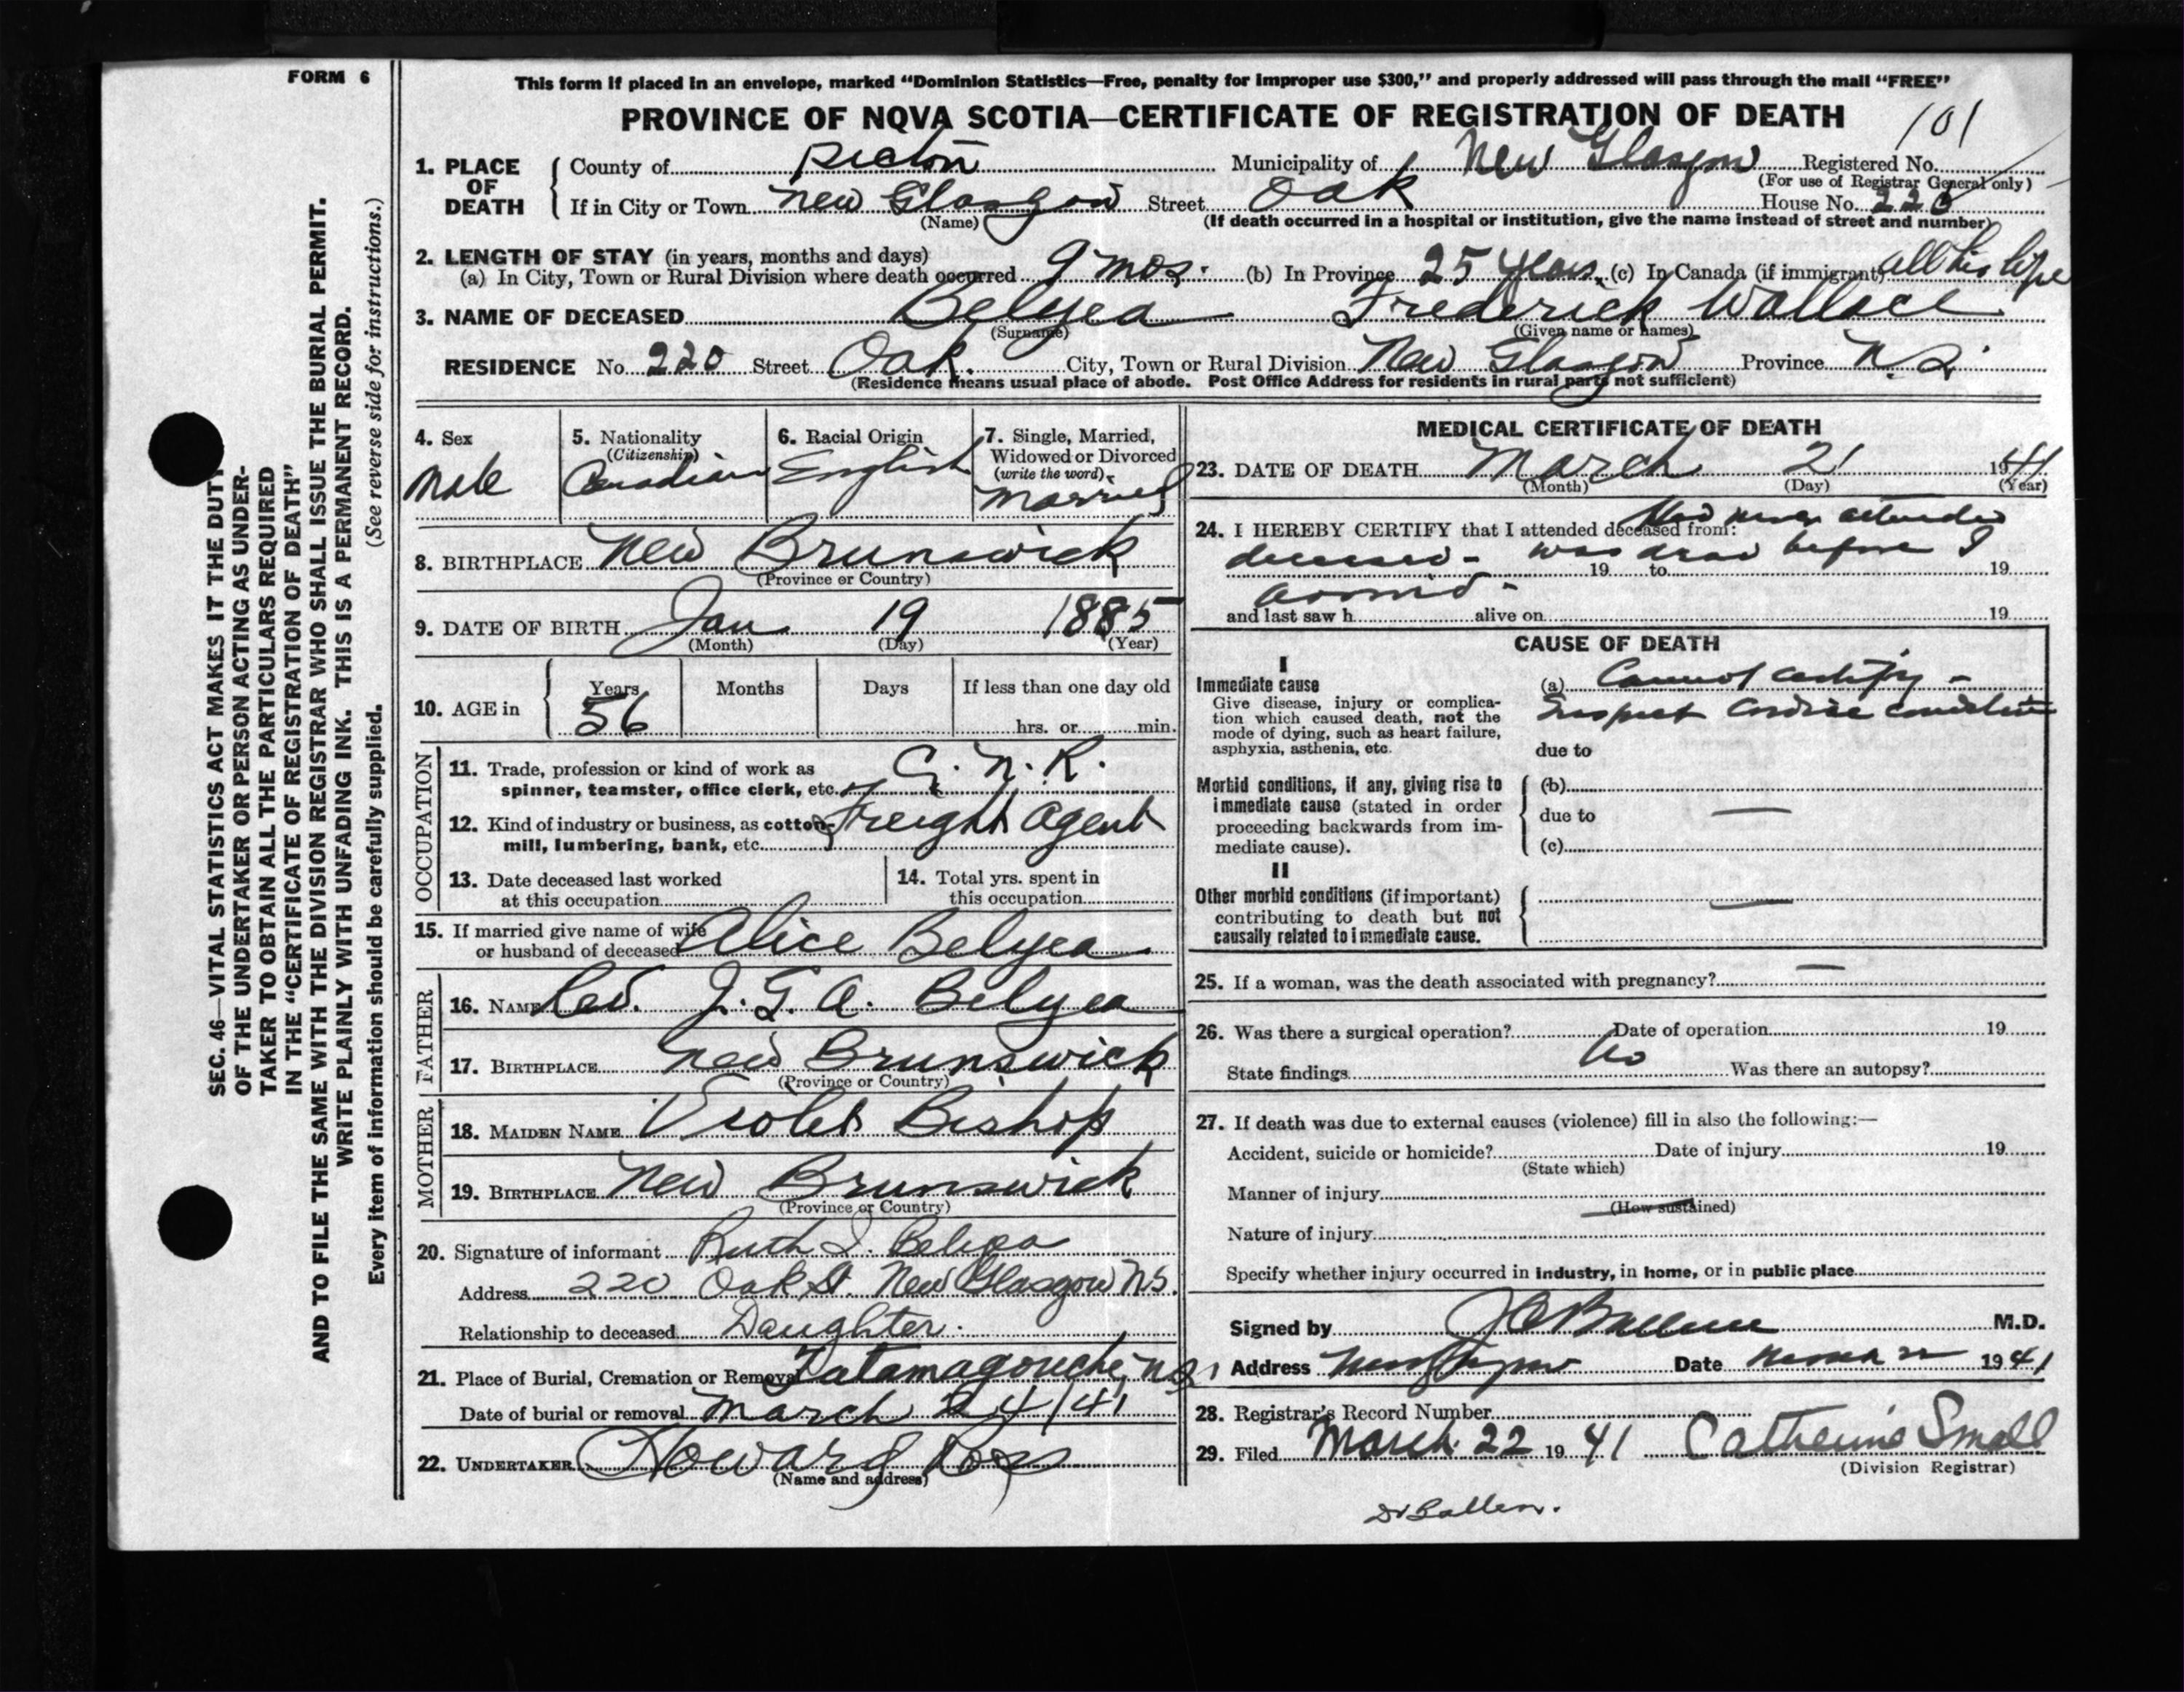 FORM 6
This form if placed in an envelope, marked “Dominion Statistics—Free, penalty for improper use $300,” and properly addressed will pass through the mail “FREE”
PROVINCE OF NOVA SCOTIA—CERTIFICATE OF REGISTRATION OF DEATH
101
1. PLACE OF DEATH County of Pictou Municipality of New Glasgow Registered No.
(For use of Registrar General only)
If in City or Town New Glasgow Street Oak House No. 220
(Name) (If death occurred in a hospital or institution, give the name instead of street and number)
2. LENGTH OF STAY (in years, months and days)
(a) In City, Town or Rural Division where death occurred 9 mos. (b) In Province 25 years (c) In Canada (if immigrant) all his life
3. NAME OF DECEASED Belyea Frederick Wallace
(Surname) (Given name or names)
RESIDENCE No. 220 Street Oak. City, Town or Rural Division New Glasgow Province N.S.
(Residence means usual place of abode. Post Office Address for residents in rural parts not sufficient)
4. Sex
Male
5. Nationality
(Citizenship)
Canadian
6. Racial Origin
English
7. Single, Married,
Widowed or Divorced
(write the word)
Married
8. BIRTHPLACE New Brunswick
(Province or Country)
9. DATE OF BIRTH Jan 19 1885
(Month) (Day) (Year)
10. AGE in Years Months Days If less than one day old
56 hrs. or min.
OCCUPATION
11. Trade, profession or kind of work as
spinner, teamster, office clerk, etc. C.N.R.
12. Kind of industry or business, as cotton-
mill, lumbering, bank, etc. Freight Agent
13. Date deceased last worked
at this occupation
14. Total yrs. spent in
this occupation
15. If married give name of wife
or husband of deceased Alice Belyea
FATHER
16. NAME Rev. J. G. A. Belyea
17. BIRTHPLACE New Brunswick
(Province or Country)
MOTHER
18. MAIDEN NAME Violet Bishop
19. BIRTHPLACE New Brunswick
(Province or Country)
20. Signature of informant Ruth I. Belyea
Address 220 Oak St. New Glasgow N.S.
Relationship to deceased Daughter.
21. Place of Burial, Cremation or Removal Tatamagouche, N.S.
Date of burial or removal March 24/41
22. UNDERTAKER Howard Ross
(Name and address)
MEDICAL CERTIFICATE OF DEATH
23. DATE OF DEATH March 21 1941
(Month) (Day) (Year)
24. I HEREBY CERTIFY that I attended deceased from: Had never attended
deceased - was dead before I
19 to 19
arrived -
and last saw h alive on 19
CAUSE OF DEATH
I
Immediate cause
Give disease, injury or complica-
tion which caused death, not the
mode of dying, such as heart failure,
asphyxia, asthenia, etc.
(a) Cannot certify -
Suspect Cardiac condition
due to
Morbid conditions, if any, giving rise to
immediate cause (stated in order
proceeding backwards from im-
mediate cause).
(b)
due to —
(c)
II
Other morbid conditions (if important)
contributing to death but not
causally related to immediate cause.
—
25. If a woman, was the death associated with pregnancy? —
26. Was there a surgical operation? Date of operation 19
No
State findings Was there an autopsy?
27. If death was due to external causes (violence) fill in also the following:—
Accident, suicide or homicide? Date of injury 19
(State which)
Manner of injury
(How sustained)
Nature of injury
Specify whether injury occurred in industry, in home, or in public place
Signed by M.D.
Address New Glasgow Date March 22 1941
28. Registrar's Record Number
29. Filed March 22 1941 Catherine Small
(Division Registrar)
SEC. 46—VITAL STATISTICS ACT MAKES IT THE DUTY
OF THE UNDERTAKER OR PERSON ACTING AS UNDER-
TAKER TO OBTAIN ALL THE PARTICULARS REQUIRED
IN THE “CERTIFICATE OF REGISTRATION OF DEATH”
AND TO FILE THE SAME WITH THE DIVISION REGISTRAR WHO SHALL ISSUE THE BURIAL PERMIT.
WRITE PLAINLY WITH UNFADING INK. THIS IS A PERMANENT RECORD.
Every item of information should be carefully supplied. (See reverse side for instructions.)